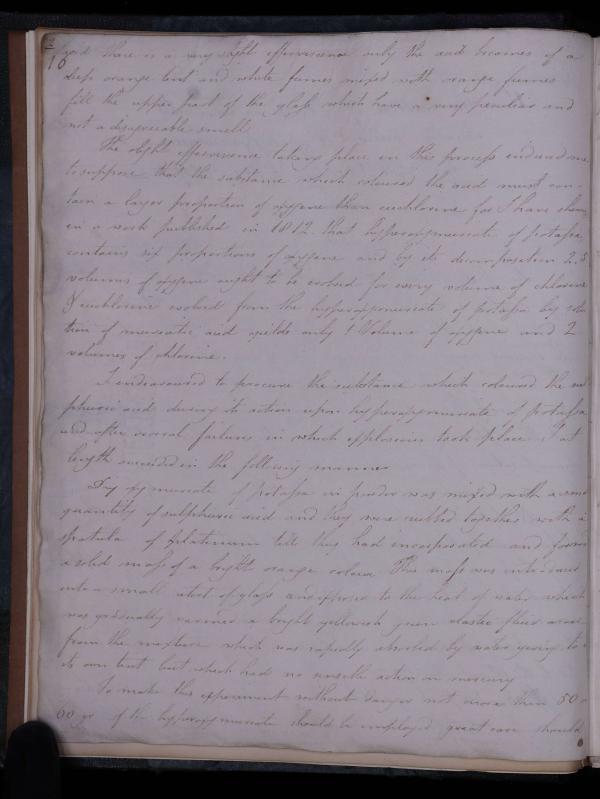 16
acid there is a very slight effervescence only the acid becomes of a
deep orange tint and white fumes mixed with orange fumes
fill the upper part of the glass which have a very peculiar and
not a disagreeable smell
The slight effervescence taking place in this process induced me
to suppose that the substance which coloured the acid must con-
tain a larger proportion of oxygene than euchlorine for I have shewn
in a work published in 1812 that hyperoxymuriate of potassa
contains six proportions of oxygene and by its decomposition 2.5
volumes of oxygene ought to be evolved for every volume of chlorine
& euchlorine evolved from the hyperoxymuriate of potassa by solu-
tion of muriatic acid yields only 1 Volume of oxygene and 2
volumes of chlorine.
I endeavoured to procure the substance which coloured the sul
phuric acid during its action upon hyperoxymuriate of potassa
and after several failures in which explosions took place I at
length succeeded in the following manner
Dry oxymuriate of potassa in powder was mixed with a small
quantity of sulphuric acid and they were rubbed together with a
spatula of platinum till they had incorporated and formed
a solid mass of a bright orange colour This mass was introduced
into a small retort of glass and exposed to the heat of water which
was gradually warmed a bright yellowish green elastic fluid arose
from the mixture which was rapidly absorbed by water giving to it
its own tint but which had no sensible action on mercury
To make this experiment without danger not more than 50 or
60 gr of the hyperoxymuriate should be employed great care should